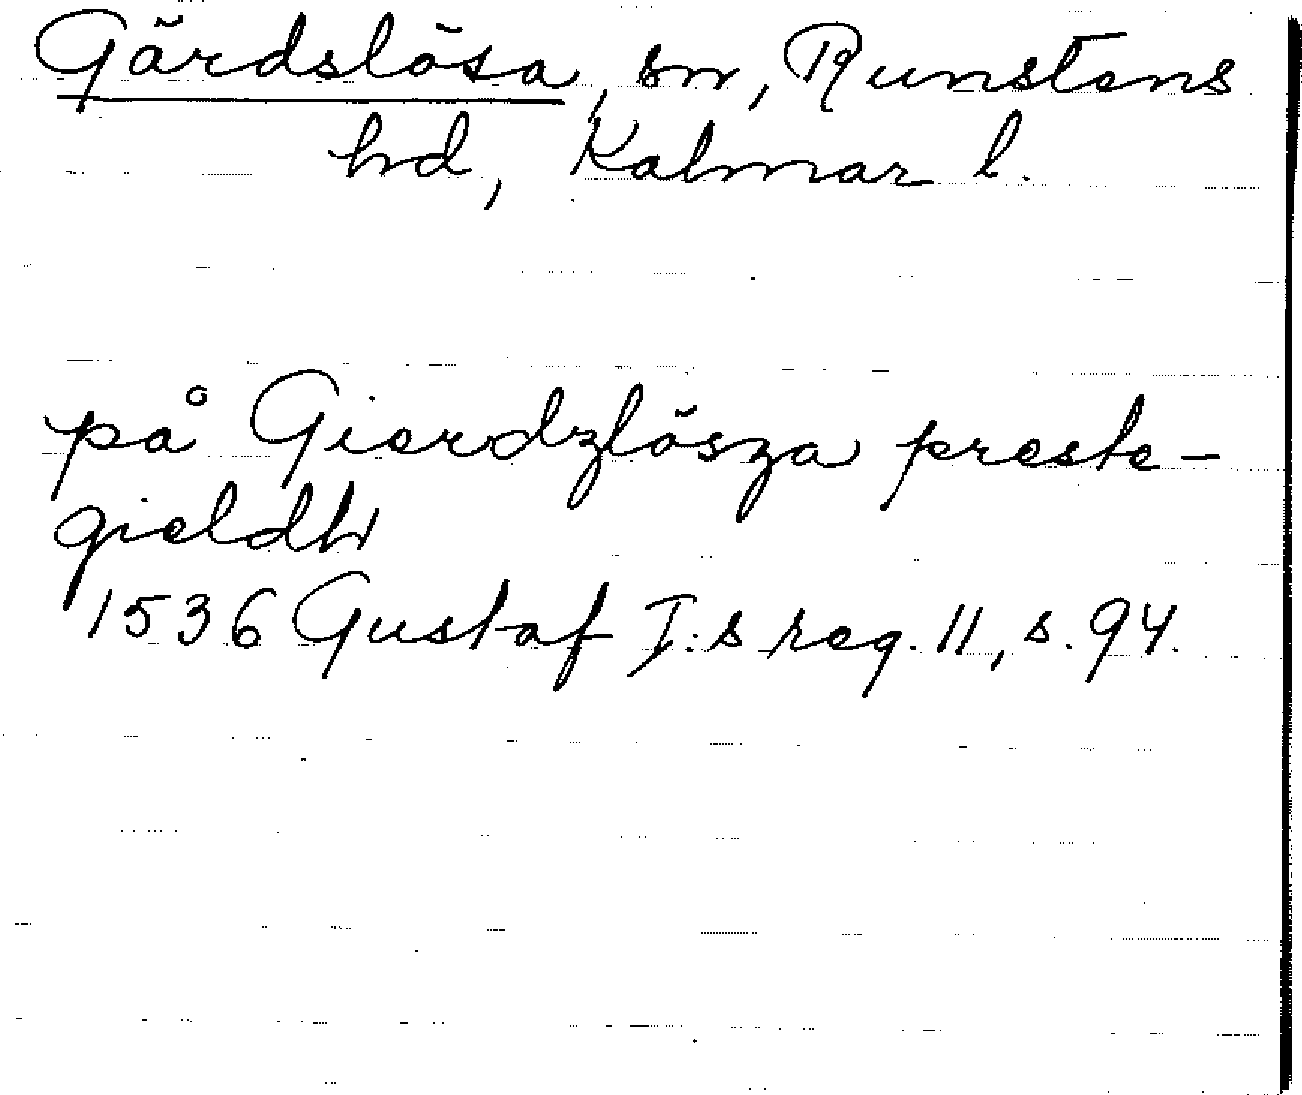 Gärdslösa, sn, Runstens
hd, Kalmar l.
på Gierdzlösza preste-
gieldh
1536 Gustaf I:s reg. 11, s. 94.